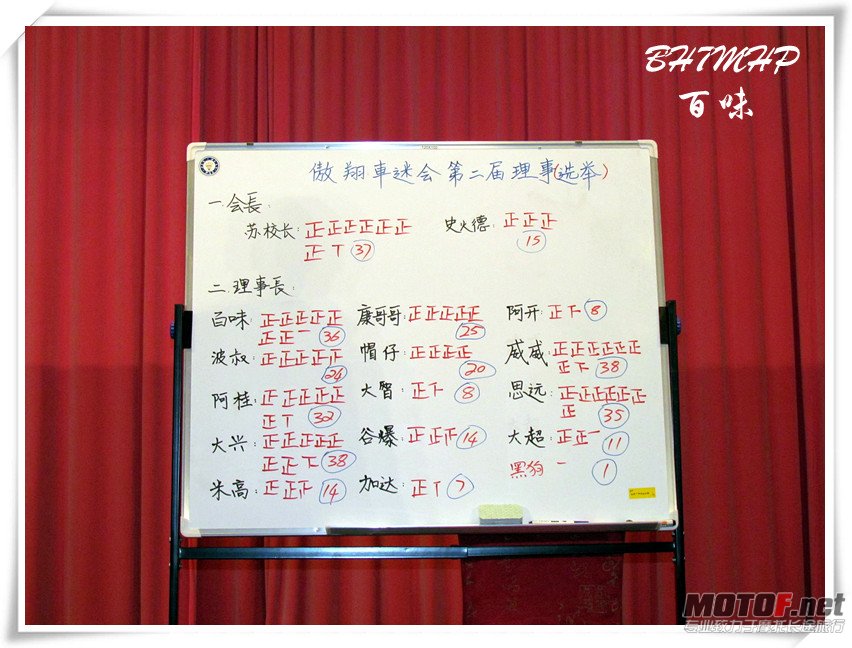 BHTMHP
百味
傲翔車迷会第二届理事(选举)
一.会長:
苏校长: 正正正正正正 史火德: 正正正
正丅 37 15
二.理事長:
百味: 正正正正正 康哥哥: 正正正正正 阿开: 正下 8
正正一 36 25
波叔: 正正正正正 帽仔: 正正正正 威威: 正正正正正正
24 20 正下 38
阿桂: 正正正正正 大智: 正下 8 思远: 正正正正正正
正丅 32 正 35
大兴: 正正正正正 谷爆: 正正正 14 大超: 正正一 11
正正下 38 黑狗 一 1
米高: 正正正 14 加达: 正丅 7
MOTOF.net
专业致力于摩托长途旅行